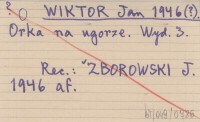 ? O WIKTOR Jan 1946(?).
Orka na ugorze. Wyd. 3.
Rec.: ZBOROWSKI J.
1946 af.